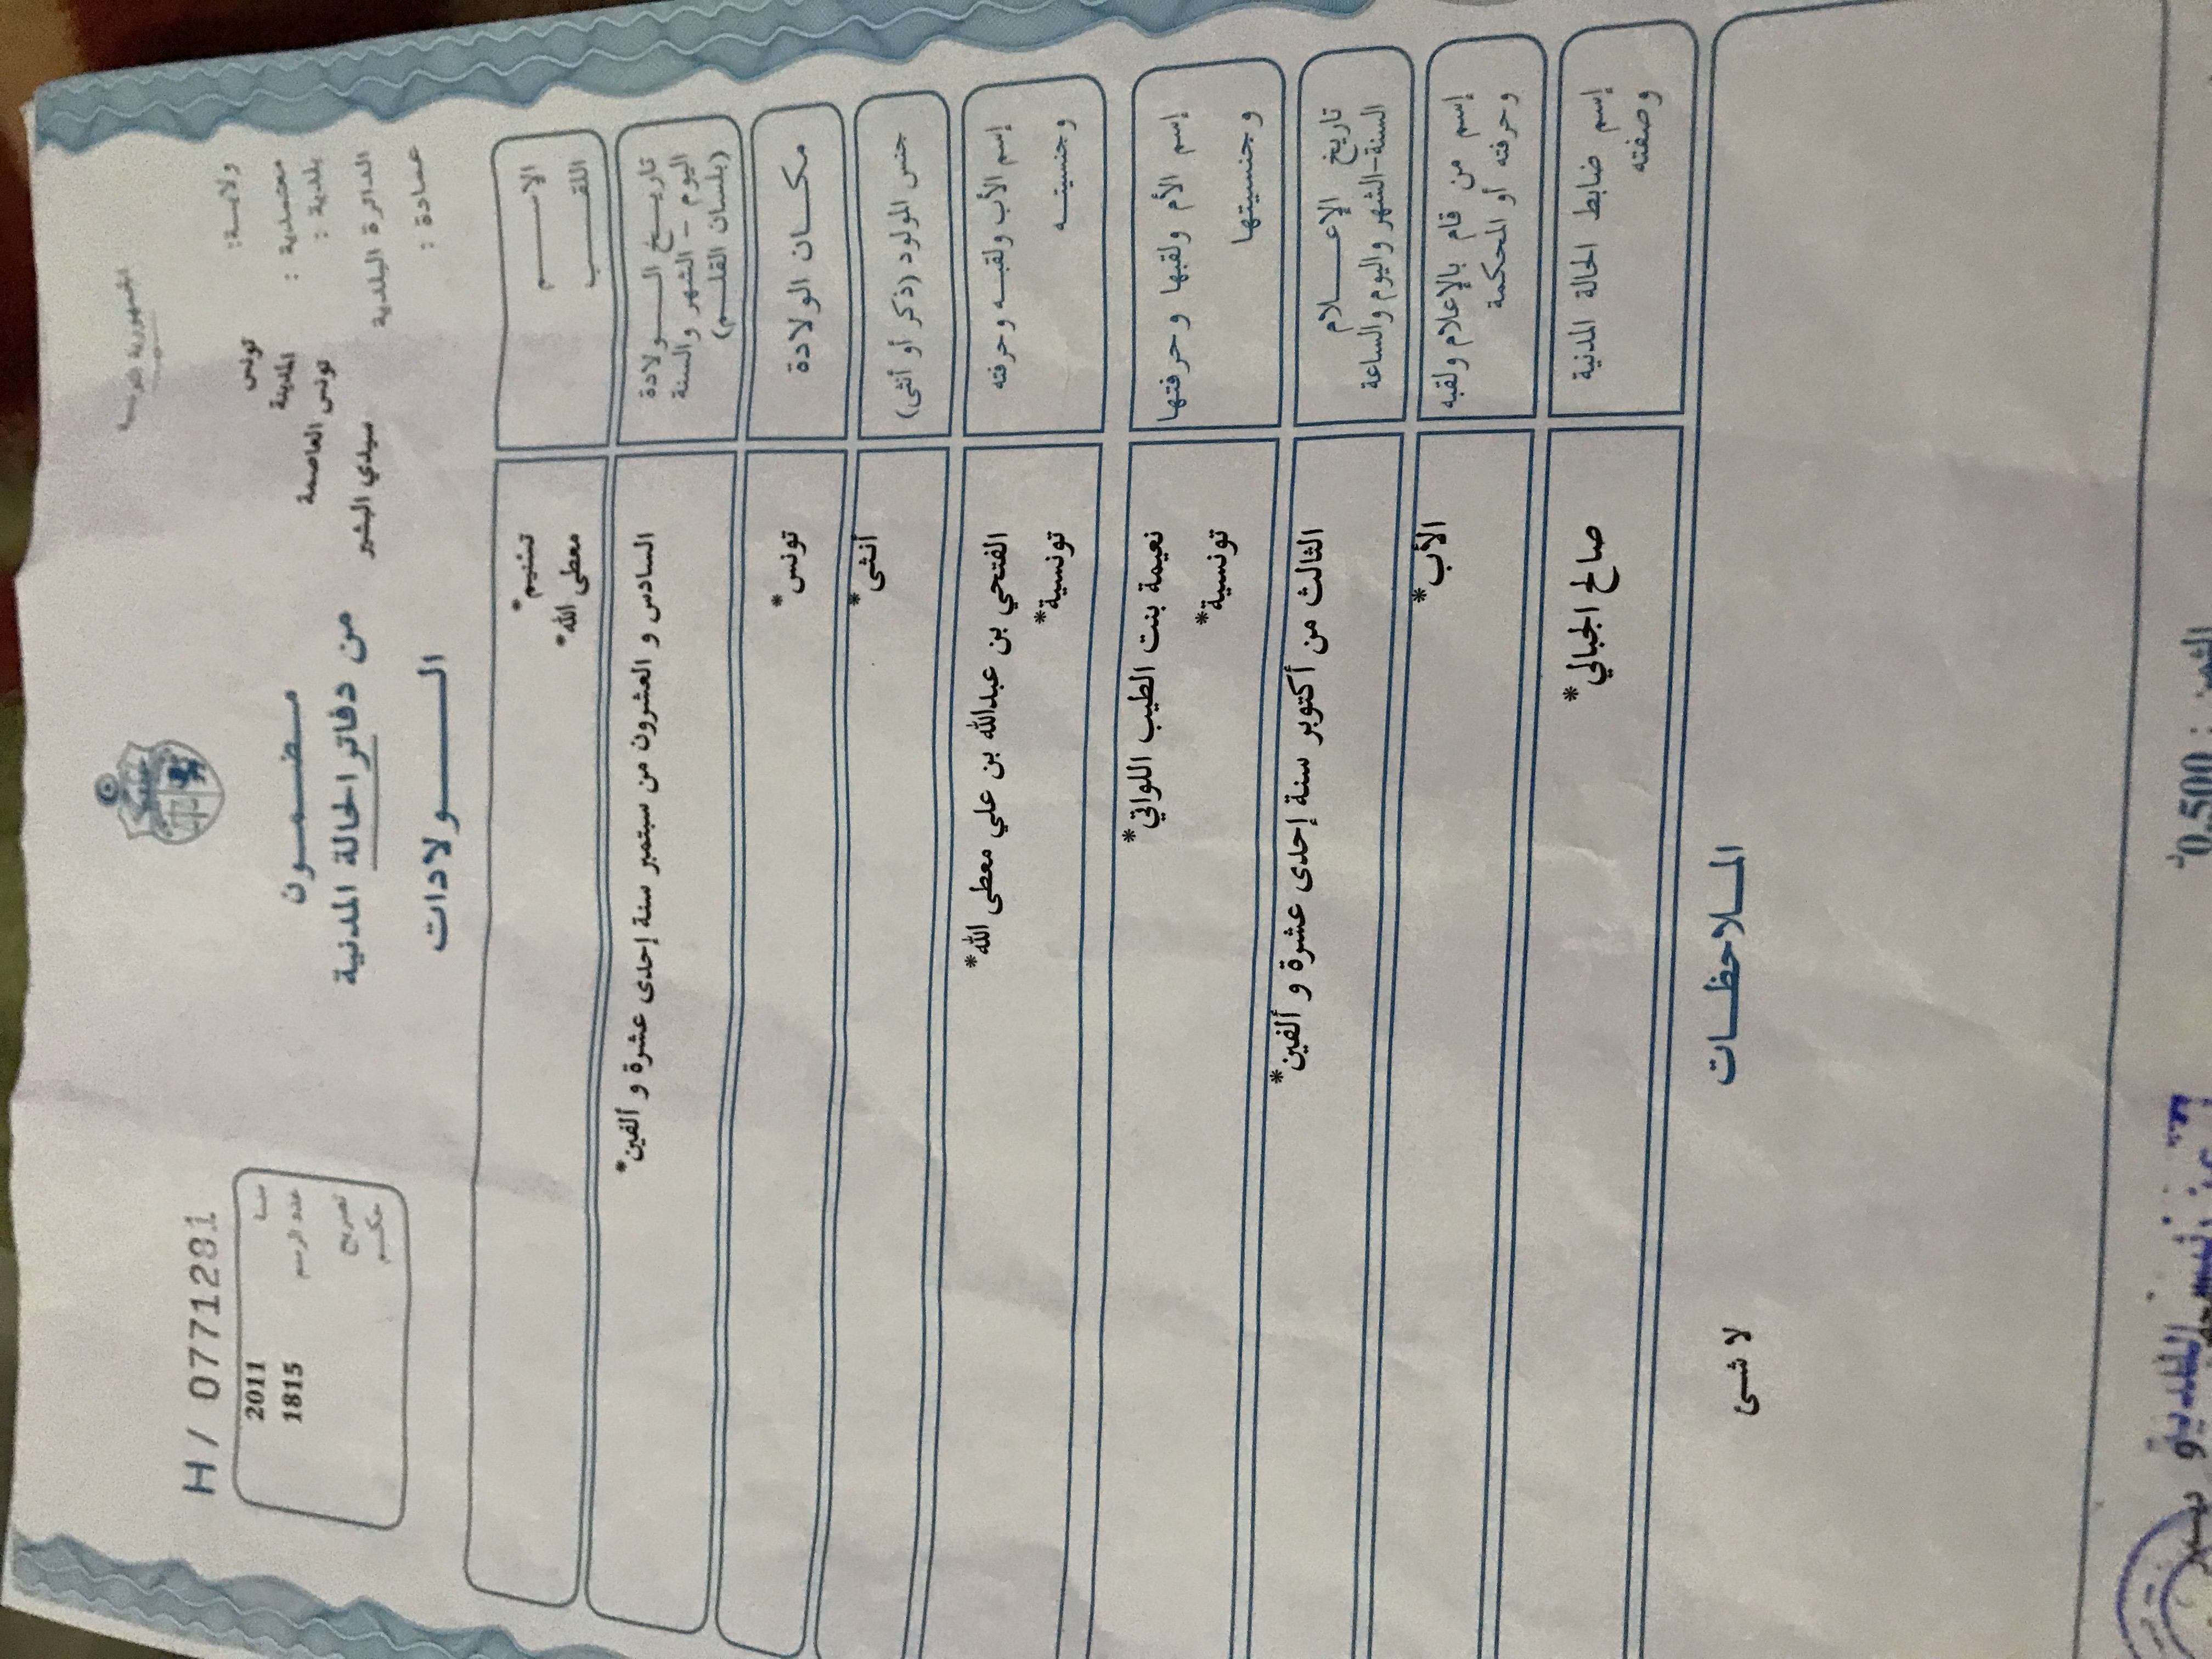 الجمهورية التونسية
H / 0771281
ولايـة: تونس
معتمدية : المدينة
بلدية : تونس العاصمة
الدائرة البلدية سيدي البشير
عمادة :
مـضـمـون
من دفاتر الحالة المدنية
الـــولادات
سنة 2011
عدد الرسم 1815
تصريح
حكم
الاســـم تسنيم*
اللقـــب معطى الله*
تاريــخ الـــولادة السادس و العشرون من سبتمبر سنة إحدى عشرة و ألفين*
اليوم – الشهر والسنة
(بلسان القلـم)
مكـان الولادة تونس*
جنس المولود (ذكر أو أنثى) أنثى*
إسم الأب ولقبـه وحرفته الفتحي بن عبدالله بن علي معطى الله*
وجنسيتـه تونسية*
إسم الأم ولقبها وحرفتها نعيمة بنت الطيب اللواتي*
وجنسيتها تونسية*
تاريخ الإعـــلام الثالث من أكتوبر سنة إحدى عشرة و ألفين*
السنة-الشهر واليوم والساعة
إسم من قام بالإعلام ولقبه الأب*
وحرفته أو المحكمة
إسم ضابط الحالة المدنية صالح الجبالي*
وصفته
المـلاحظـات
لا شىء
الثمن : 0,500د